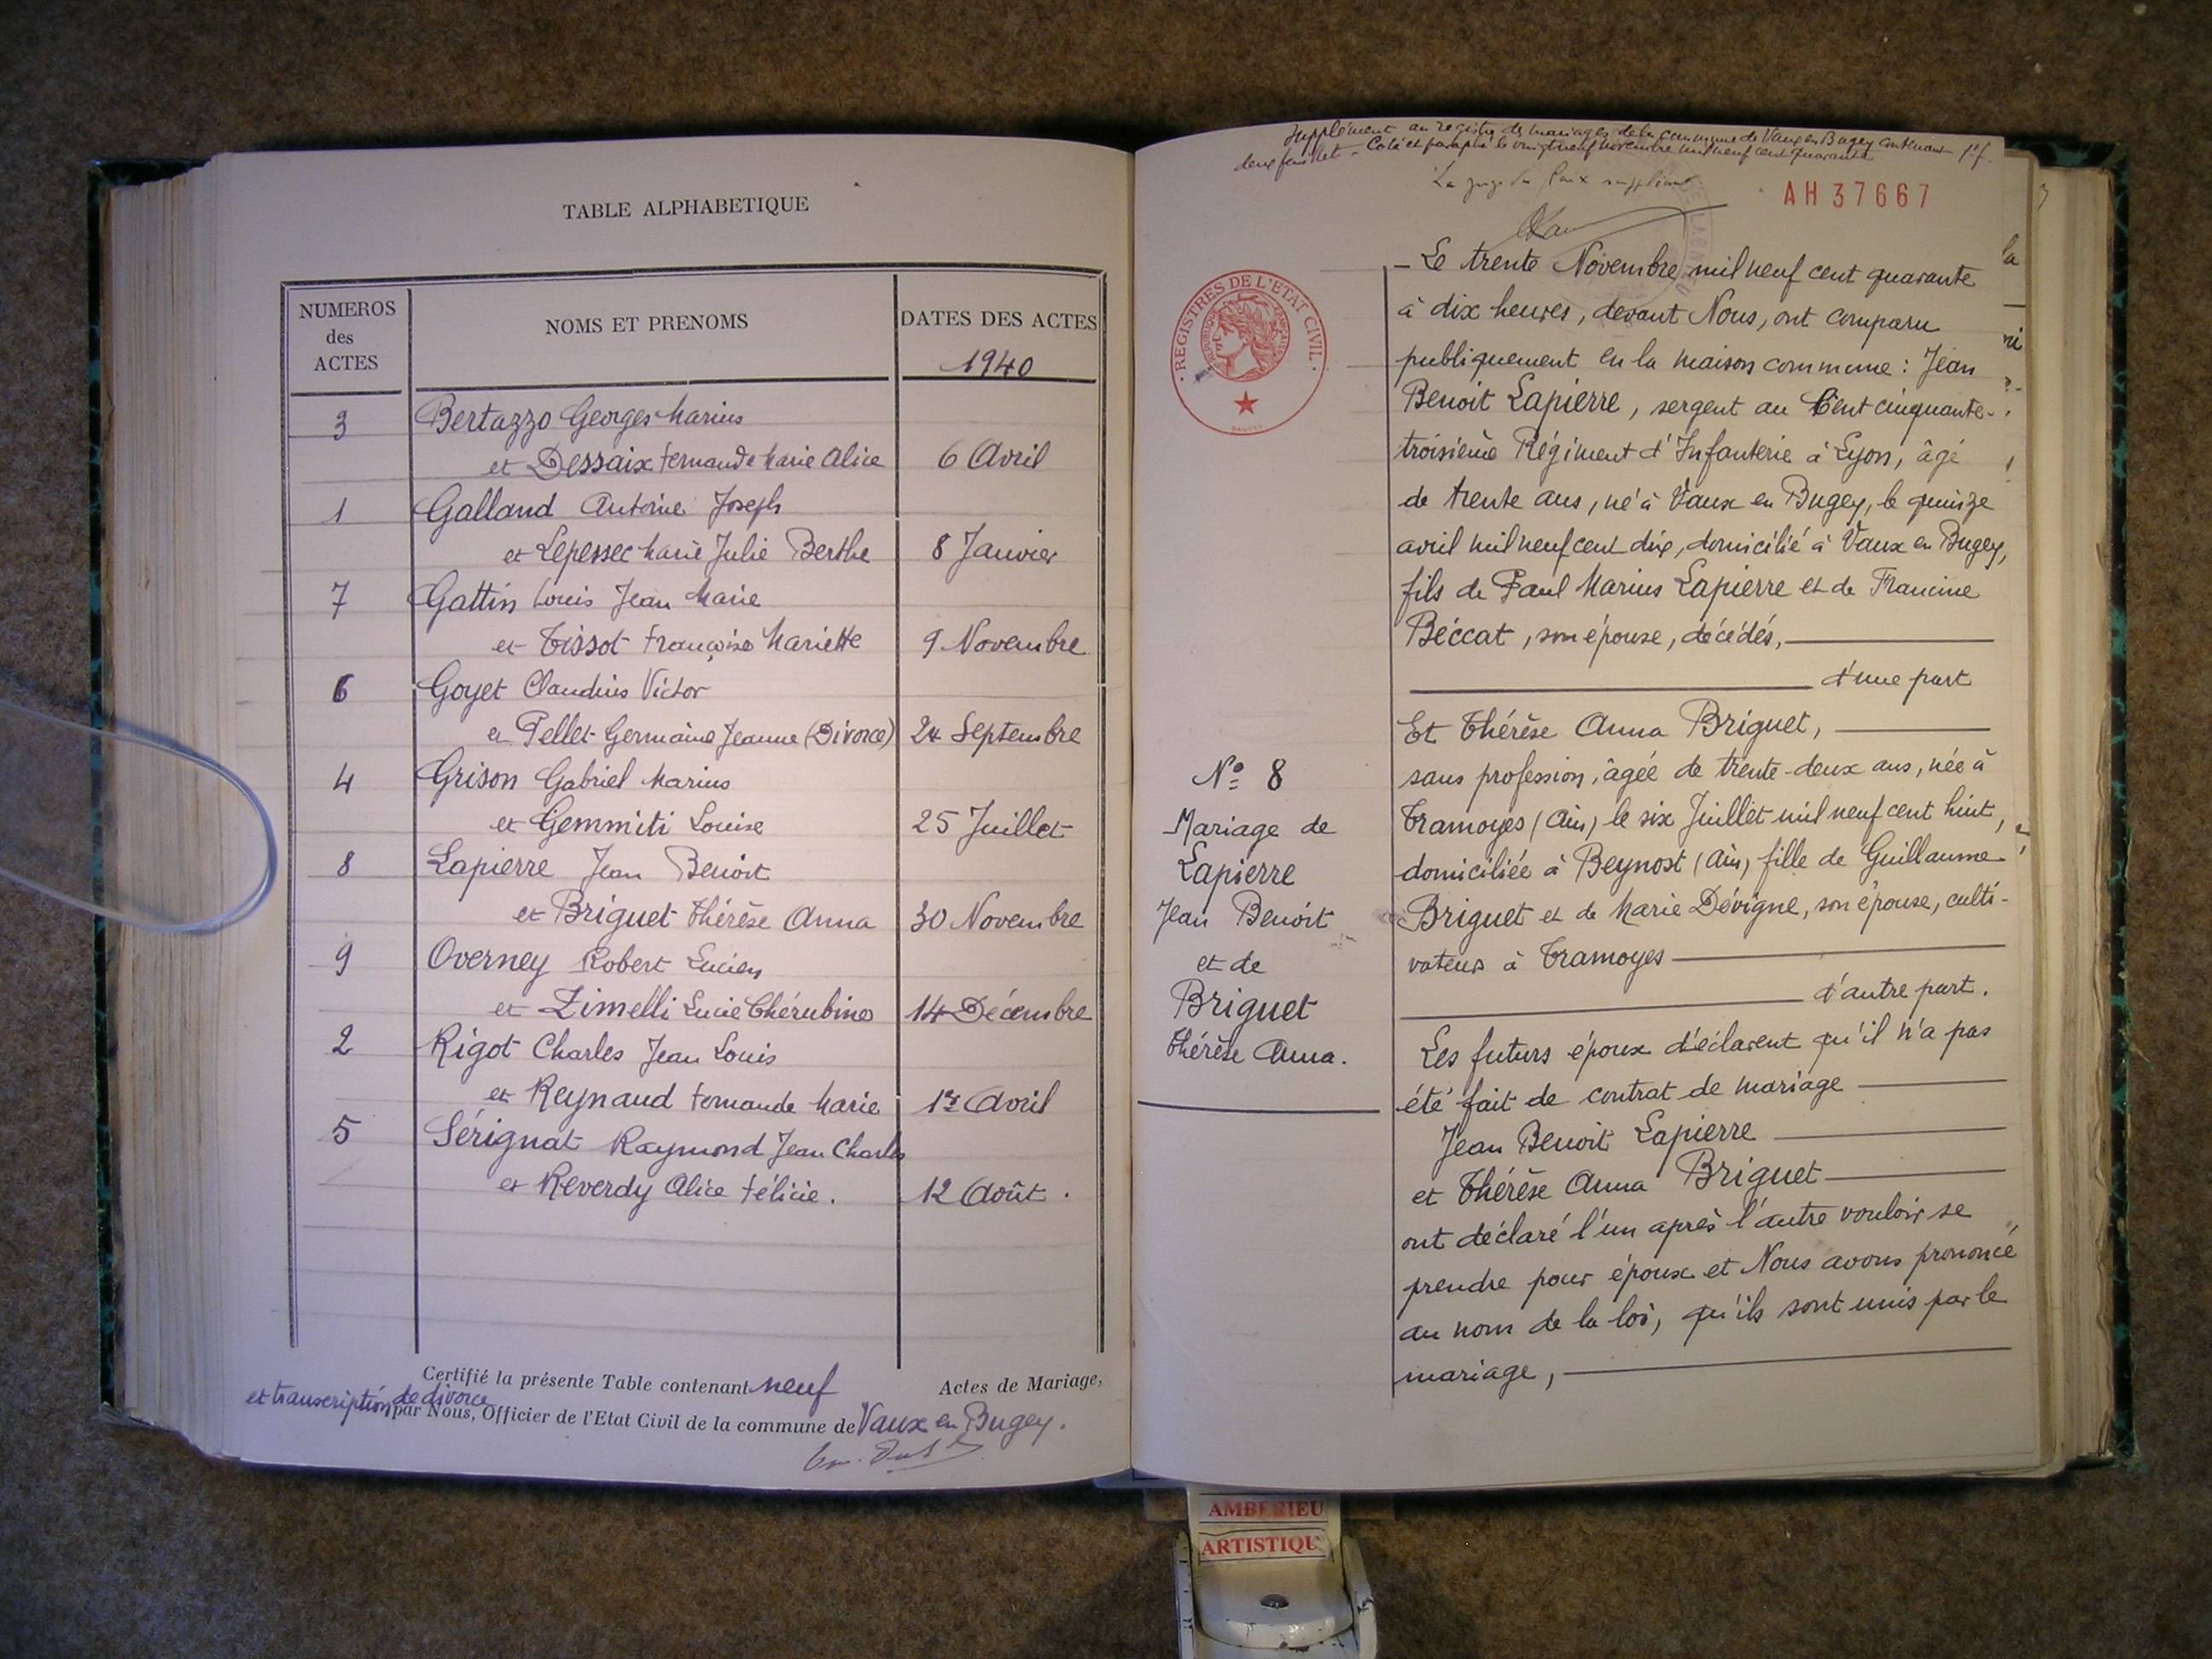 TABLE ALPHABETIQUE
NUMEROS
des
ACTES
NOMS ET PRENOMS
DATES DES ACTES
1940
3 Bertazzo Georges Marius
et Dessaix Fernande Marie Alice 6 Avril
1 Galland Antoine Joseph
et Lepessec Marie Julie Berthe 8 Janvier
7 Gattin Louis Jean Marie
et Tissot Françoise Mariette 9 Novembre
6 Goyet Claudius Victor
et Pellet Germaine Jeanne (Divorce) 24 Septembre
4 Grison Gabriel Marius
et Gemmiti Louise 25 Juillet
8 Lapierre Jean Benoit
et Briguet Thérèse Anna 30 Novembre
9 Overney Robert Lucien
et Zimelli Lucie Chérubine 14 Décembre
2 Rigot Charles Jean Louis
et Reynaud Fernande Marie 1er Avril
5 Sérignat Raymond Jean Charles
et Reverdy Alice Félicie. 12 Août.
Certifié la présente Table contenant neuf Actes de Mariage,
et transcription de divorce
par Nous, Officier de l'Etat Civil de la commune de Vaux en Bugey.
Supplément au registre de mariages de la commune de Vaux en Bugey contenant
deux feuillet - Coté et paraphé le vingt neuf novembre mil neuf cent quarante
Le juge de Paix suppléant
AH 37667
REGISTRES DE L'ETAT CIVIL
REPUBLIQUE FRANÇAISE
- Le trente Novembre mil neuf cent quarante
à dix heures, devant Nous, ont comparu
publiquement en la maison commune : Jean
Benoit Lapierre, sergent au Cent cinquante-
troisième Régiment d'Infanterie à Lyon, âgé
de trente ans, né à Vaux en Bugey, le quinze
avril mil neuf cent dix, domicilié à Vaux en Bugey,
fils de Paul Marius Lapierre et de Francine
Béccat, son épouse, décédés,
d'une part
Et Thérèse Anna Briguet,
sans profession, âgée de trente-deux ans, née à
Tramoyes (Ain) le six Juillet mil neuf cent huit,
domiciliée à Beynost (Ain) fille de Guillaume
Briguet et de Marie Dévigne, son épouse, culti-
vateurs à Tramoyes
d'autre part.
Les futurs époux déclarent qu'il n'a pas
été fait de contrat de mariage
Jean Benoit Lapierre
et Thérèse Anna Briguet
ont déclaré l'un après l'autre vouloir se
prendre pour époux et Nous avons prononcé
au nom de la loi, qu'ils sont unis par le
mariage,
No 8
Mariage de
Lapierre
Jean Benoit
et de
Briguet
Thérèse Anna.
AMBERIEU
ARTISTIQU